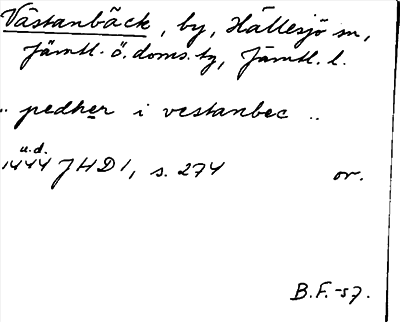 Västanbäck, by, Hällesjö sn,
Jämtl. ö. doms. tg, Jämtl. l.
.. pedher i vestanbec ..
u.d.
1444 JHD 1, s. 274 or.
B.F.-57.